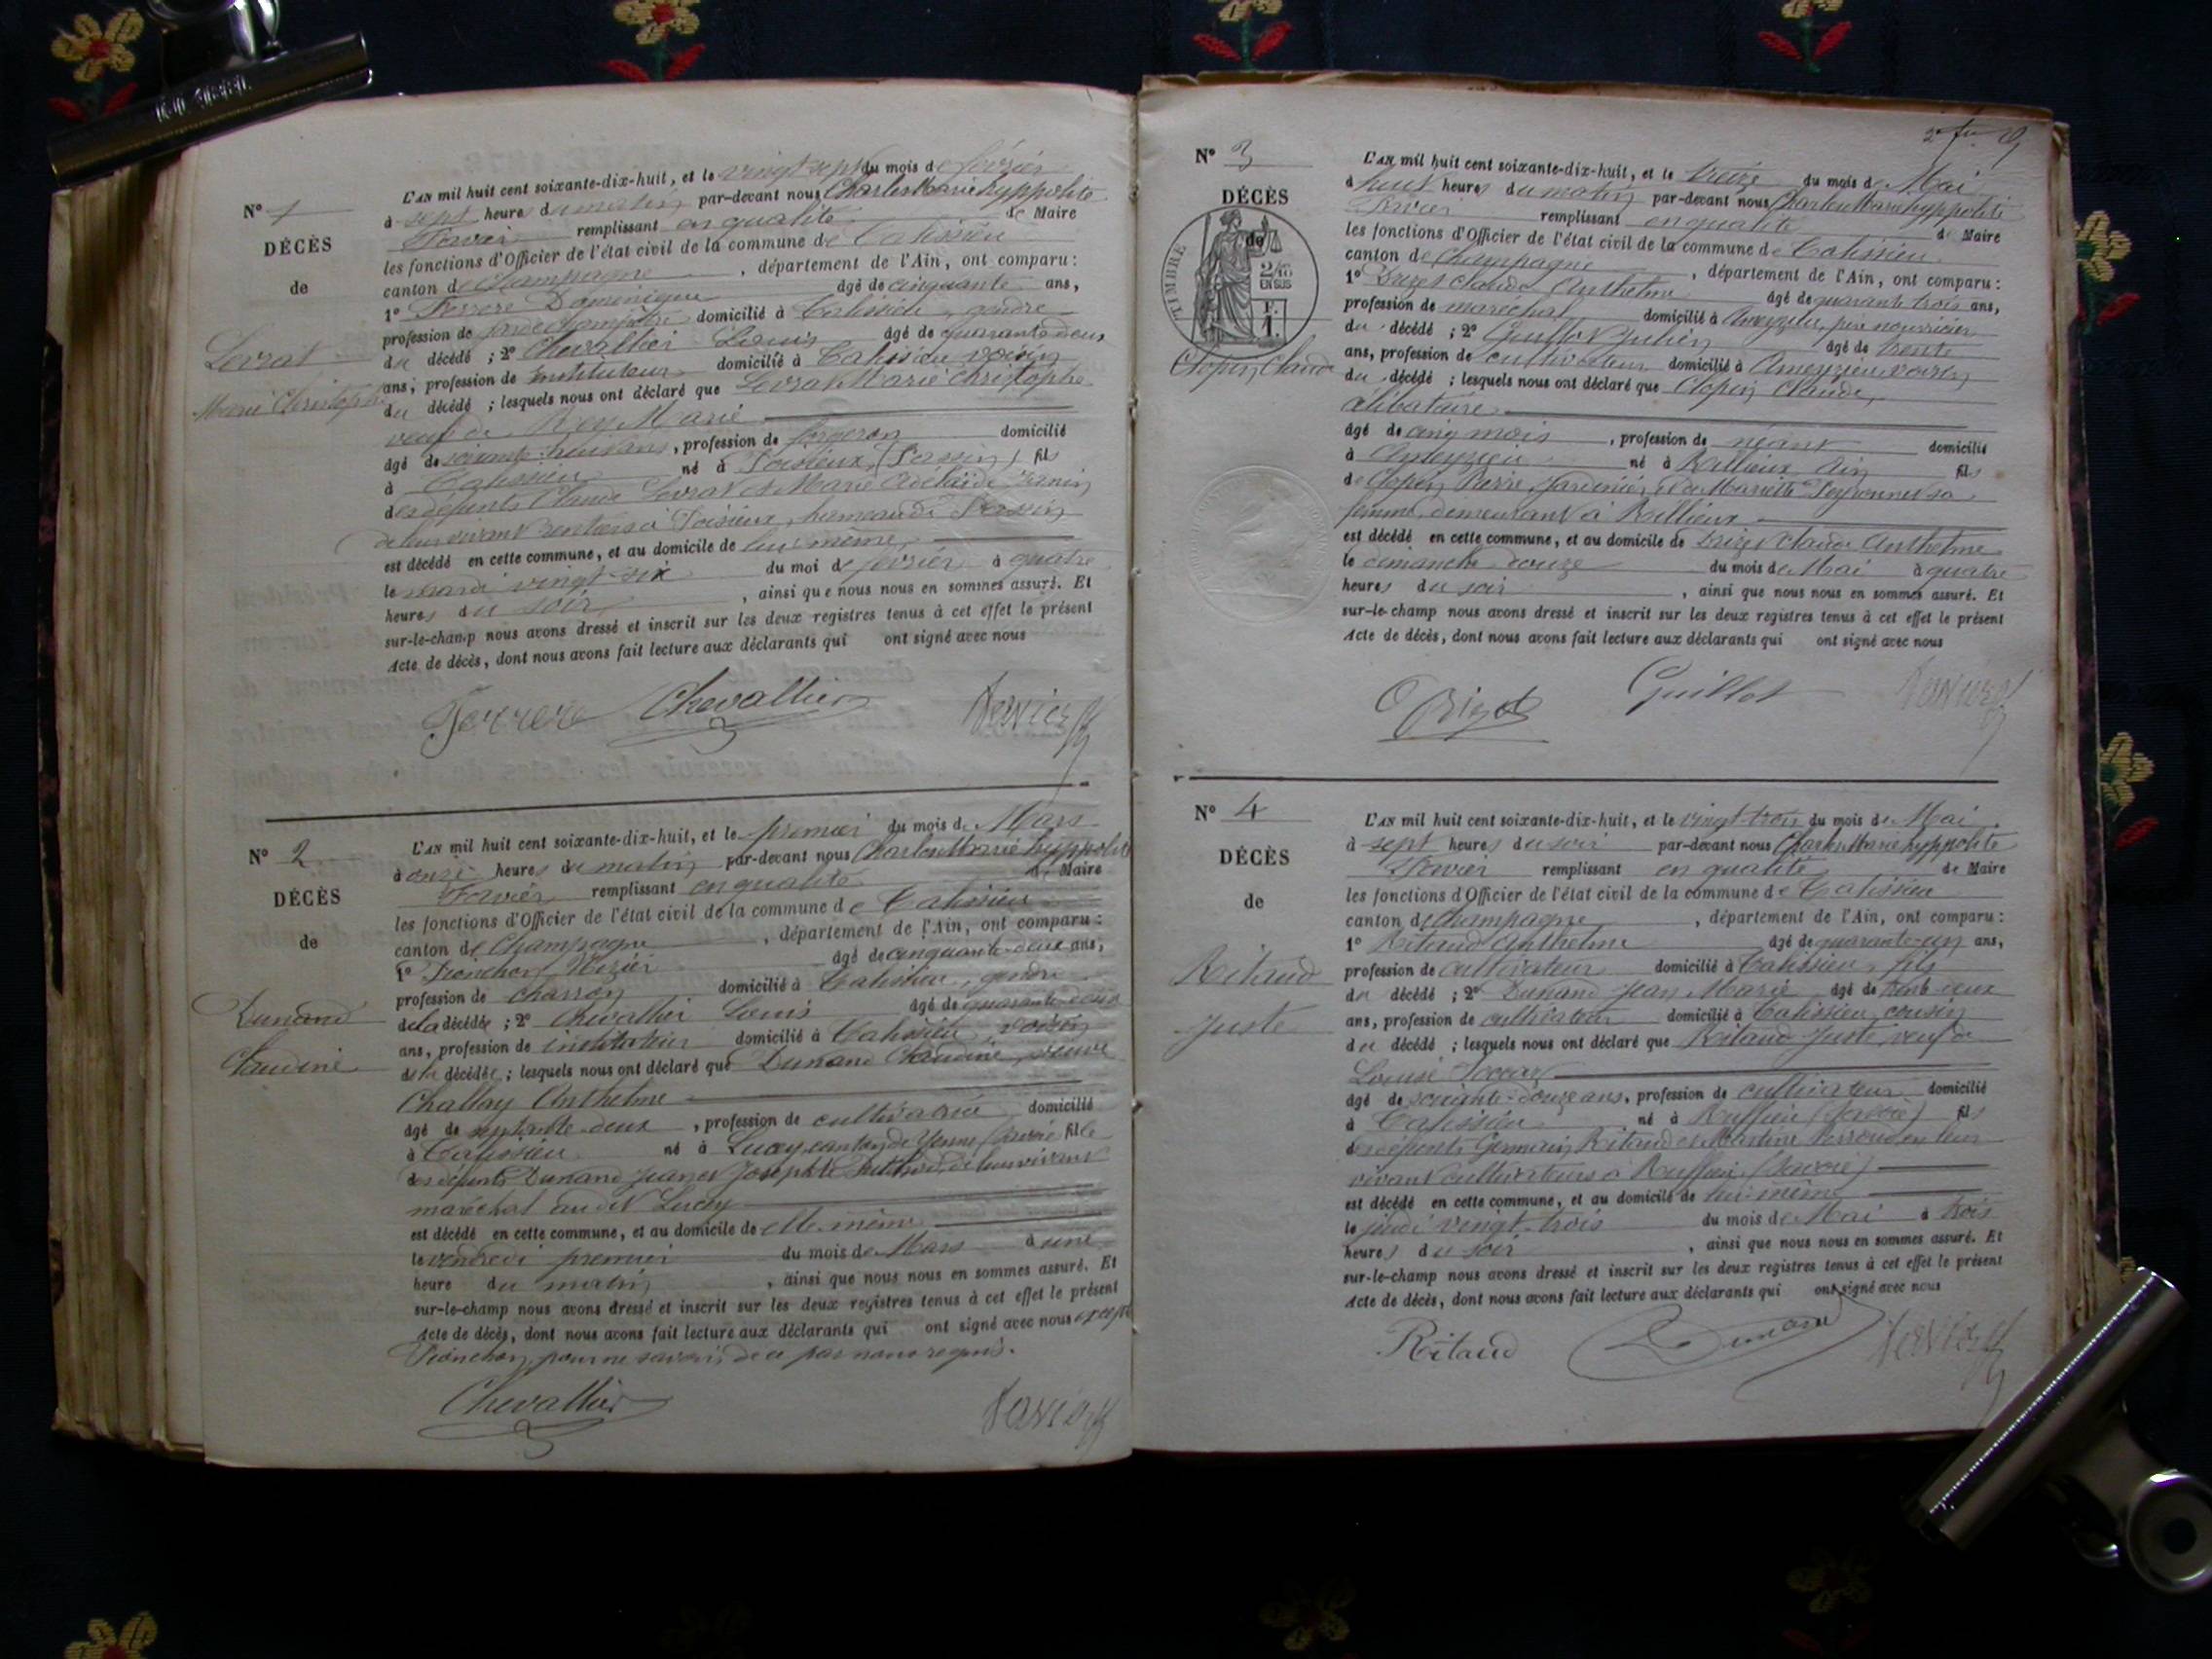 N° 1
DÉCÈS
de
Levrat
Marie Christophe
L'AN mil huit cent soixante-dix-huit, et le vingt-sept du mois de février
à sept heures du matin par-devant nous Charles Marie hyppolite
remplissant en qualité de Maire
les fonctions d'Officier de l'état civil de la commune de Talissieu
canton de Champagne, département de l'Ain, ont comparu:
1° Ferrere Dominique âgé de cinquante ans,
profession de garde champêtre domicilié à Talissieu, gendre
du décédé; 2° Chevallier Louis âgé de quarante deux
ans, profession de Instituteur domicilié à Talissieu voisin
du décédé; lesquels nous ont déclaré que Levrat Marie Christophe
veuf de Rey Marie
âgé de soixante-huit ans, profession de forgeron domicilié
à Talissieu né à fils
des défunts Claude Levrat et Marie Adélaïde
de leur vivant rentiers à hameau de
est décédé en cette commune, et au domicile de lui même
le mardi vingt-six du moi de février à quatre
heures du soir, ainsi que nous nous en sommes assuré. Et
sur-le-champ nous avons dressé et inscrit sur les deux registres tenus à cet effet le présent
Acte de décès, dont nous avons fait lecture aux déclarants qui ont signé avec nous
Ferrere Chevallier
N° 2
DÉCÈS
de
Dunand
Claudine
L'AN mil huit cent soixante-dix-huit, et le premier du mois de Mars
à onze heures du matin par-devant nous Charles Marie hyppolite
remplissant en qualité de Maire
les fonctions d'Officier de l'état civil de la commune de Talissieu
canton de Champagne, département de l'Ain, ont comparu:
1° Pionchon âgé de cinquante-deux ans,
profession de charron domicilié à Talissieu, gendre
de la décédée; 2° Chevallier Louis âgé de quarante-deux
ans, profession de instituteur domicilié à Talissieu, voisin
de la décédée; lesquels nous ont déclaré que Dunand Claudine, veuve
Challay Anthelme
âgé de septante-deux, profession de cultivatrice domicilié
à Talissieu né à Lucey canton de Yenne (Savoie) fille
des défunts Dunand Jean et Josephte de leur vivant
maréchal au dit Lucey
est décédé en cette commune, et au domicile de elle-même
le vendredi premier du mois de Mars à une
heure du matin, ainsi que nous nous en sommes assuré. Et
sur-le-champ nous avons dressé et inscrit sur les deux registres tenus à cet effet le présent
Acte de décès, dont nous avons fait lecture aux déclarants qui ont signé avec nous excepté
Pionchon pour ne savoir, de ce par nous requis.
Chevallier
N° 3
DÉCÈS
de
TIMBRE
2/10
EN SUS
F.
1.
Clopin Claude
L'AN mil huit cent soixante-dix-huit, et le treize du mois de Mai
à huit heures du matin par-devant nous Charles Marie hyppolite
remplissant en qualité de Maire
les fonctions d'Officier de l'état civil de la commune de Talissieu
canton de Champagne, département de l'Ain, ont comparu:
1° Claude Anthelme âgé de quarante trois ans,
profession de maréchal domicilié à Ameyzieu, père nourricier
du décédé; 2° Guillot Julien âgé de trente
ans, profession de cultivateur domicilié à Ameyzieu voisin
du décédé; lesquels nous ont déclaré que Clopin Claude,
célibataire
âgé de cinq mois, profession de néant domicilié
à Ameyzieu né à Rillieux, Ain fils
de Clopin Pierre, Jardinier et de Mariette Peyronnet sa
femme, demeurant à Rillieux
est décédé en cette commune, et au domicile de Claude Anthelme
le dimanche douze du mois de Mai à quatre
heures du soir, ainsi que nous nous en sommes assuré. Et
sur-le-champ nous avons dressé et inscrit sur les deux registres tenus à cet effet le présent
Acte de décès, dont nous avons fait lecture aux déclarants qui ont signé avec nous
Guillot
N° 4
DÉCÈS
de
Ritaud
Juste
L'AN mil huit cent soixante-dix-huit, et le vingt-trois du mois de Mai
à sept heures du soir par-devant nous Charles Marie hyppolite
remplissant en qualité de Maire
les fonctions d'Officier de l'état civil de la commune de Talissieu
canton de Champagne, département de l'Ain, ont comparu:
1° Ritaud Anthelme âgé de quarante-un ans,
profession de cultivateur domicilié à Talissieu, fils
du décédé; 2° Dunand Jean Marie âgé de trente-deux
ans, profession de cultivateur domicilié à Talissieu, cousin
du décédé; lesquels nous ont déclaré que Ritaud Juste, veuf de
Louise
âgé de soixante-douze ans, profession de cultivateur domicilié
à Talissieu né à Ruffieu (Savoie) fils
des défunts Germain Ritaud et Martine Perroud en leur
vivant cultivateurs à Ruffieu (Savoie)
est décédé en cette commune, et au domicile de lui-même
le jeudi vingt-trois du mois de Mai à trois
heures du soir, ainsi que nous nous en sommes assuré. Et
sur-le-champ nous avons dressé et inscrit sur les deux registres tenus à cet effet le présent
Acte de décès, dont nous avons fait lecture aux déclarants qui ont signé avec nous
Ritaud Dunand